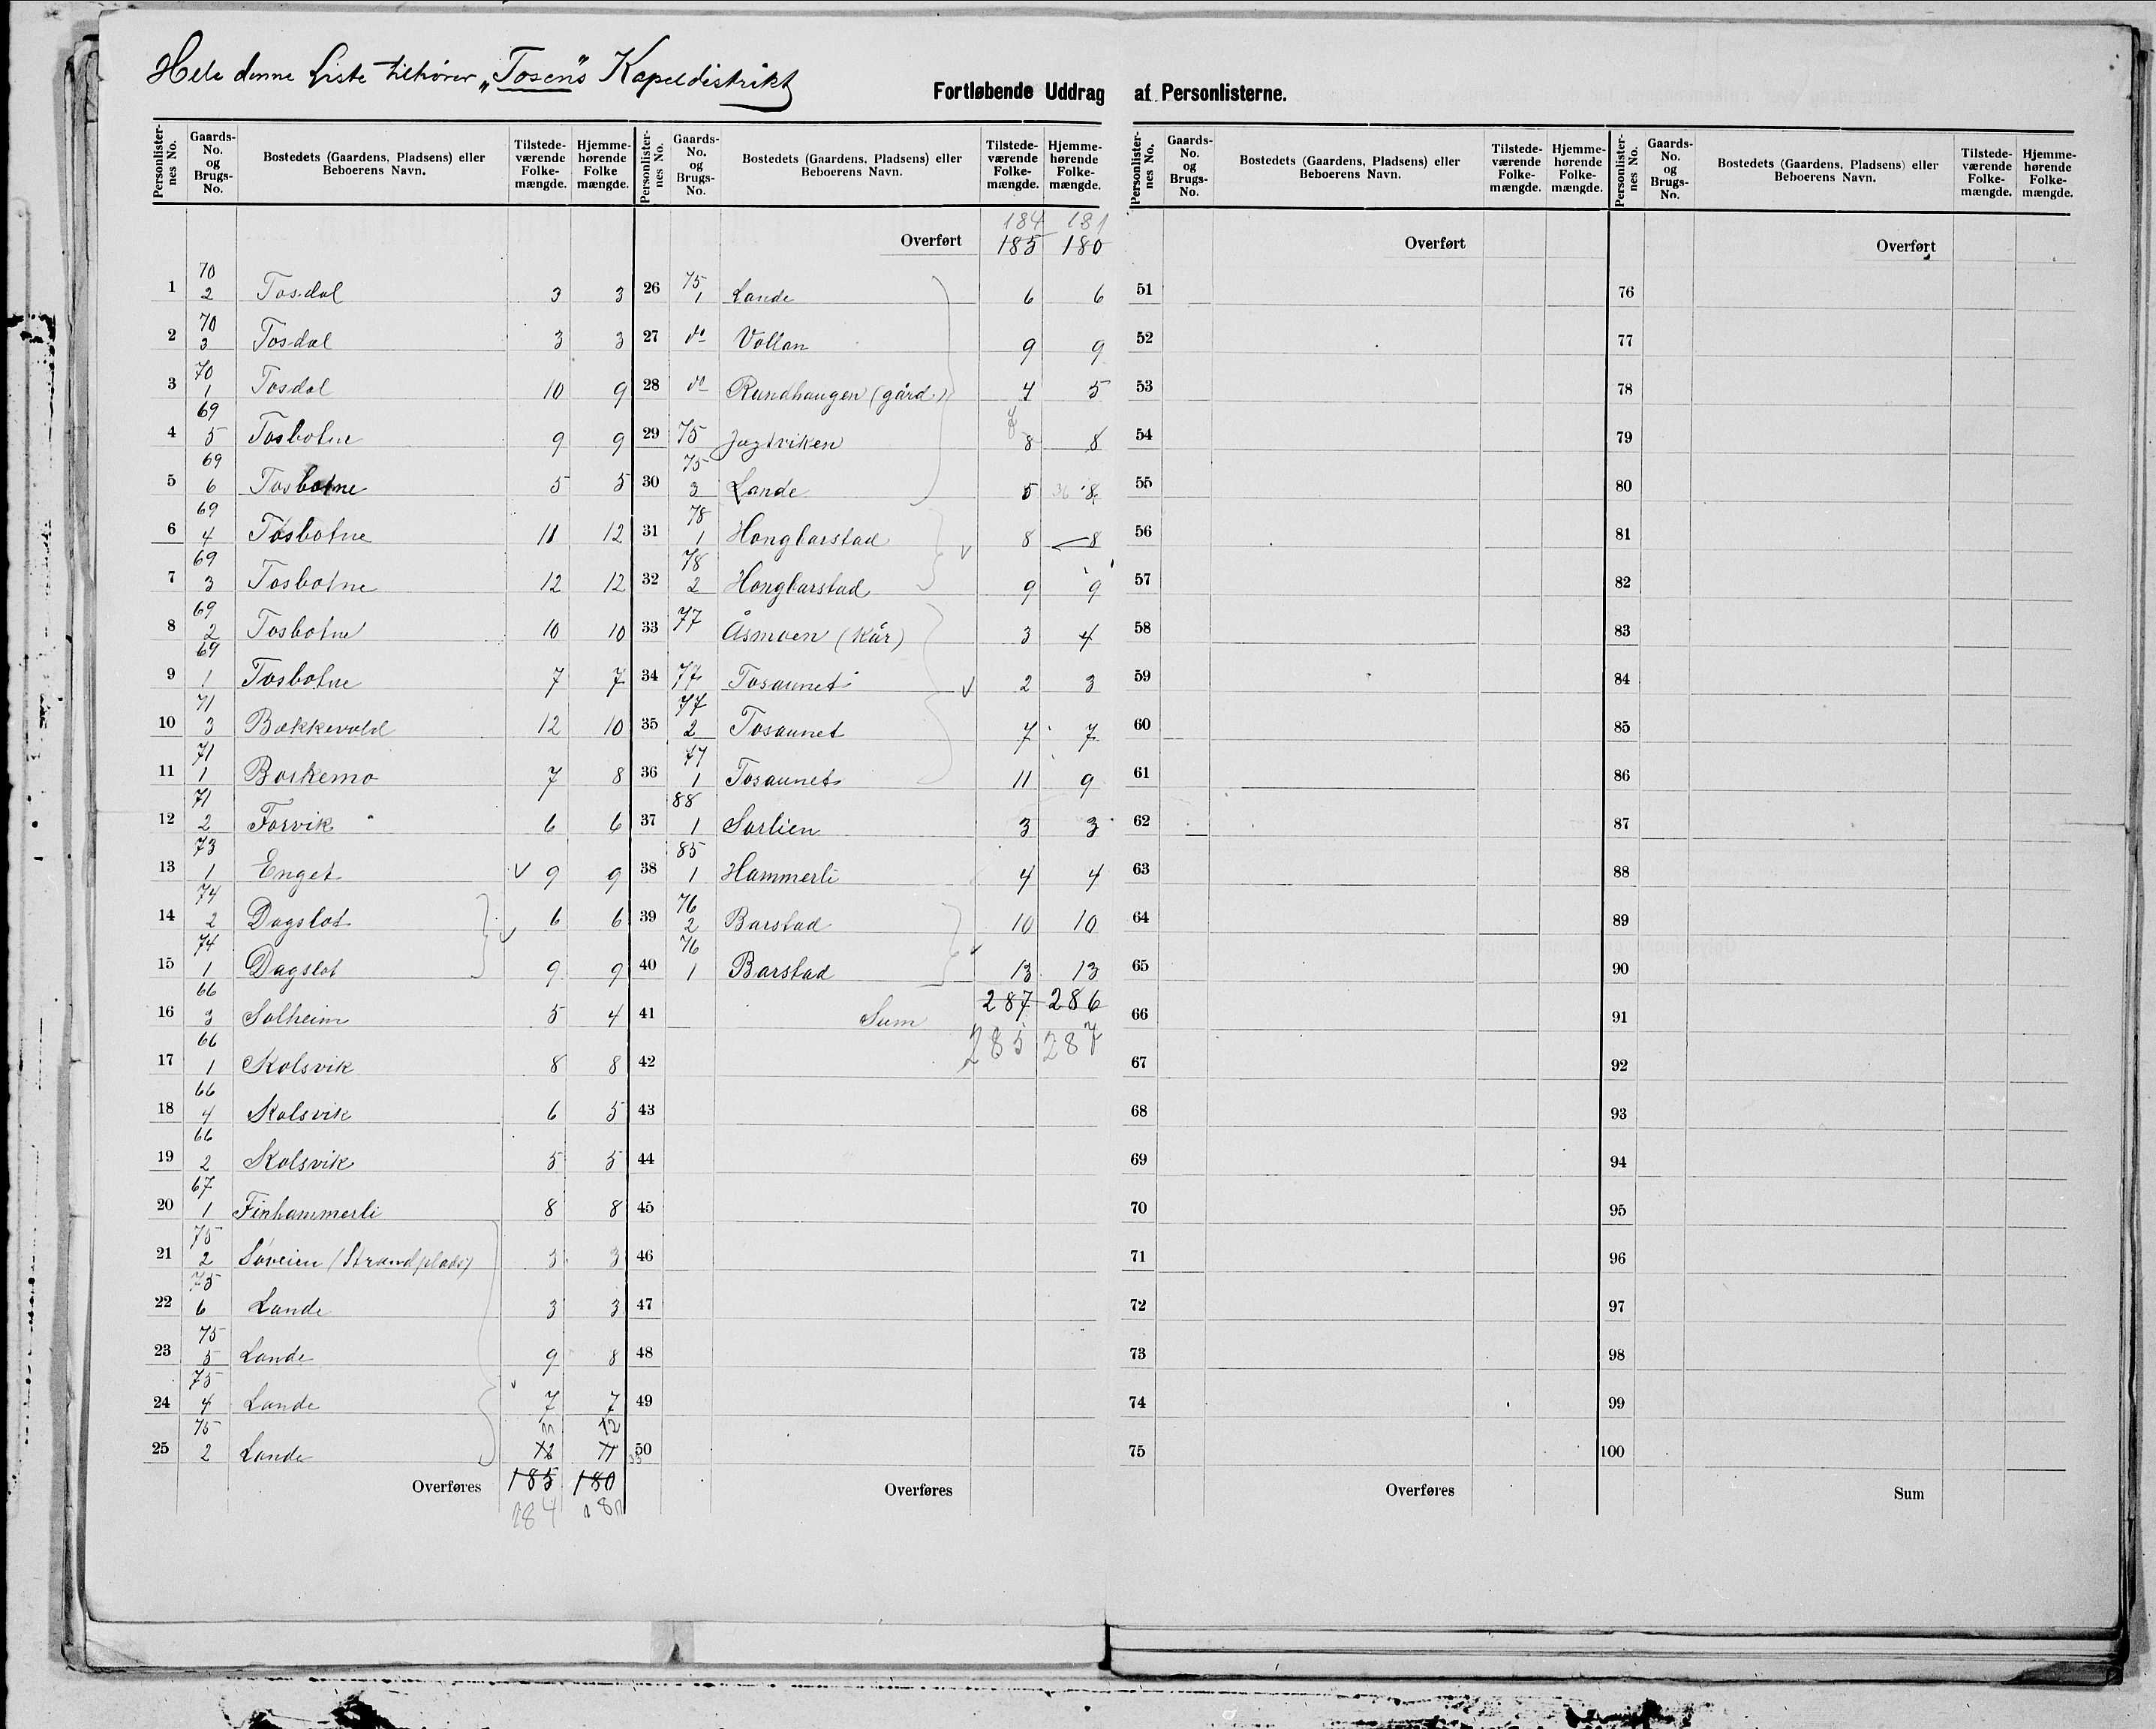 Hele denne Liste tilhører „Tosens" Kapeldistrikt
Fortløbende Uddrag af Personlisterne.
Personlister-nes No. Gaards-No. og Brugs-No. Bostedets (Gaardens, Pladsens) eller Beboerens Navn. Tilstede-værende Folke-mængde. Hjemme-hørende Folke mængde.
1 70 2 Tosdal 3 3
2 70 3 Tosdal 3 3
3 70 1 Tosdal 10 9
4 69 5 Tosbotne 9 9
5 69 6 Tosbotne 5 5
6 69 4 Tosbotne 11 12
7 69 3 Tosbotne 12 12
8 69 2 Tosbotne 10 10
9 69 1 Tosbotne 7 7
10 71 3 Bakkevold 12 10
11 71 1 Borkemo 7 8
12 71 2 Forvik 6 6
13 73 1 Enget 9 9
14 74 2 Dagslot 6 6
15 74 1 Dagslot 9 9
16 66 3 Solheim 5 4
17 66 1 Kolsvik 8 8
18 66 4 Kolsvik 6 5
19 66 2 Kolsvik 5 5
20 67 1 Finhammerli 8 8
21 75 2 Søveien (Strandplads) 3 3
22 75 6 Lande 3 3
23 75 5 Lande 9 8
24 75 4 Lande 7 7
25 75 2 Lande 12 11 12
Overføres 185 180
184
Personlister-nes No. Gaards-No. og Brugs-No. Bostedets (Gaardens, Pladsens) eller Beboerens Navn. Tilstede-værende Folke-mængde. Hjemme-hørende Folke-mængde.
184 181
Overført 185 180
26 75 1 Lande 6 6
27 do Vollan 9 9
28 do Rundhaugen (gård) 4 5
29 75 Jagtviken 7 8 8
30 75 3 Lande 5 36 8
31 78 1 Hongbarstad 8 8
32 78 2 Hongbarstad 9 9
33 77 Åsmoen (Kår) 3 4
34 77 Tosaunet 2 3
35 77 2 Tosaunet 7 7
36 77 1 Tosaunet 11 9
37 88 1 Sorlien 3 3
38 85 1 Hammerli 4 4
39 76 2 Barstad 10 10
40 76 1 Barstad 13 13
287 286
41 Sum
285 287
42
43
44
45
46
47
48
49
50
Overføres
Personlister-nes No. Gaards-No. og Brugs-No. Bostedets (Gaardens, Pladsens) eller Beboerens Navn. Tilstede-værende Folke-mængde. Hjemme-hørende Folke-mængde.
Overført
51
52
53
54
55
56
57
58
59
60
61
62
63
64
65
66
67
68
69
70
71
72
73
74
75
Overføres
Personlister-nes No. Gaards-No. og Brugs-No. Bostedets (Gaardens, Pladsens) eller Beboerens Navn. Tilstede-værende Folke-mængde. Hjemme-hørende Folke-mængde.
Overført
76
77
78
79
80
81
82
83
84
85
86
87
88
89
90
91
92
93
94
95
96
97
98
99
100
Sum